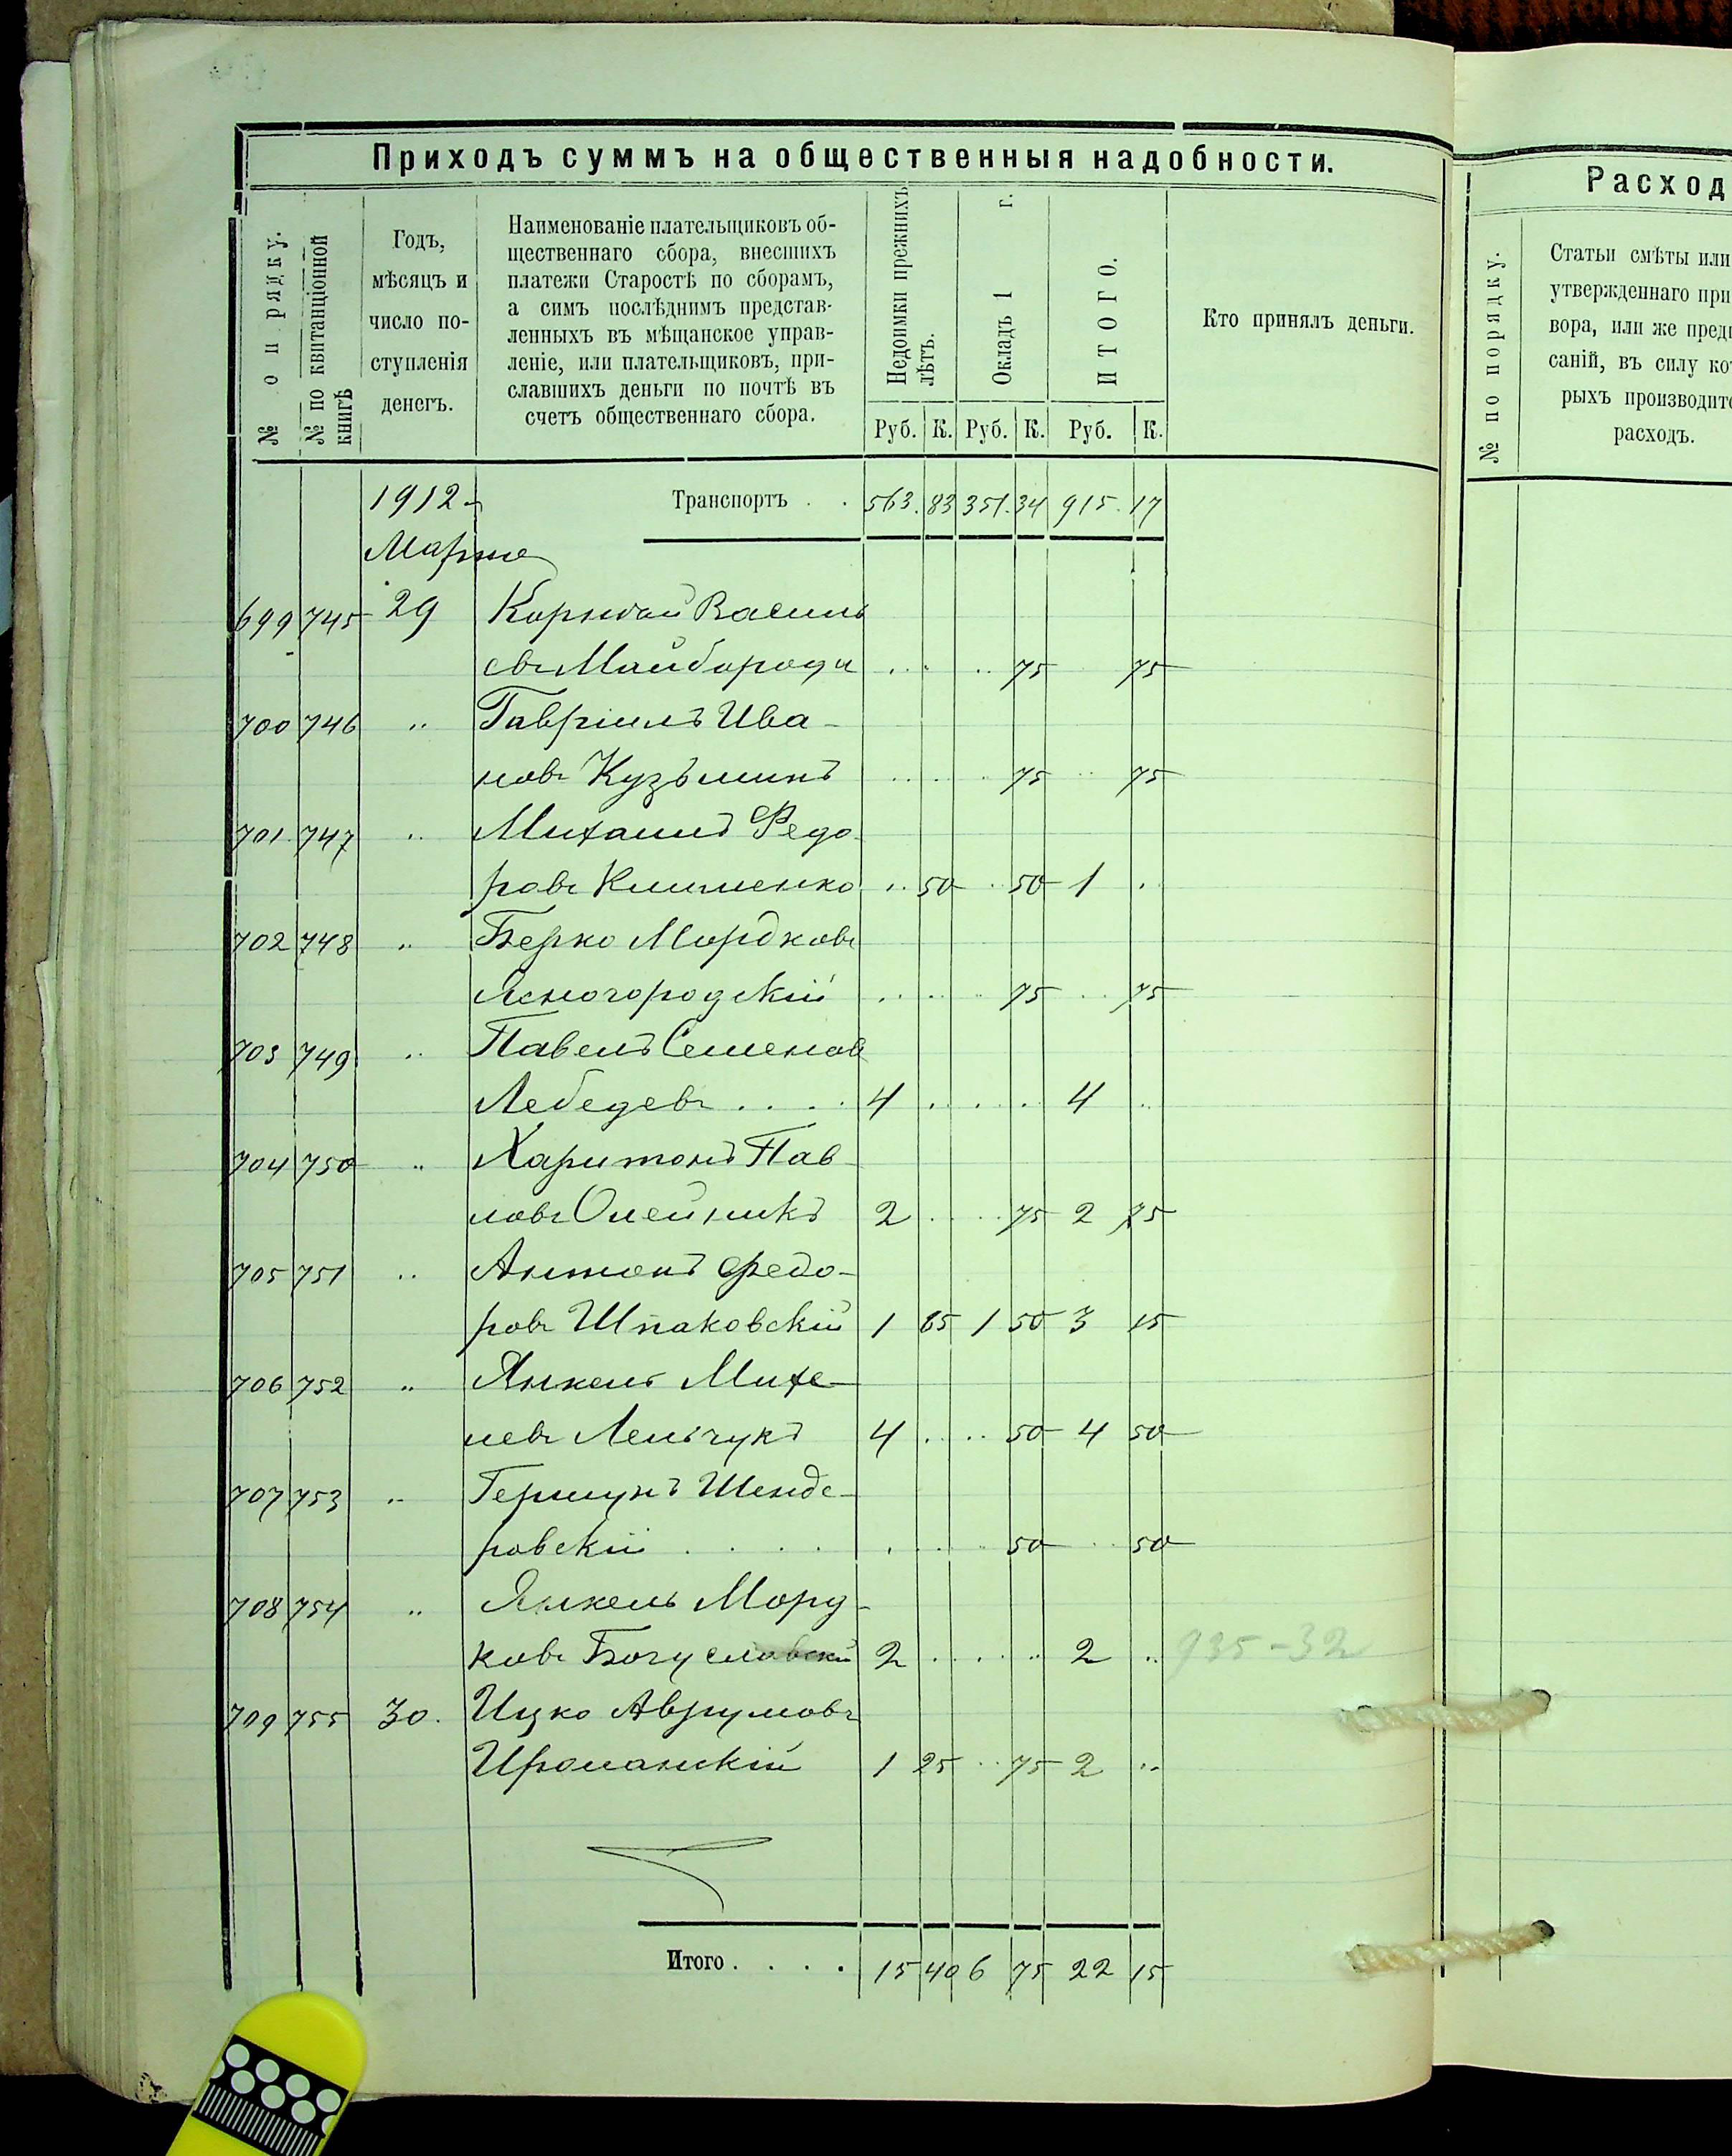 Приходъ суммъ на общественныя надобности.
№ по порядку.
№ по квитанціонной книгѣ
Годъ,
мѣсяцъ и
число по-
ступленія
денегъ.
Наименованіе плательщиковъ об-
щественнаго сбора, внесшихъ
платежи Старостѣ по сборамъ,
а симъ послѣднимъ представ-
ленныхъ въ мѣщанское управ-
леніе, или плательщиковъ, при-
славшихъ деньги по почтѣ въ
счетъ общественнаго сбора.
Недоимки прежнихъ
лѣтъ.
Окладъ 1 г.
ИТОГО.
Кто принялъ деньги.
Руб. К. Руб. К. Руб. К.
1912 Транспортъ . . 563. 83 351. 34 915. 17
Марта
699 745 29 Корнѣй Василь
евъ Майборода .. .. 75 75
700 746 " Гавріилъ Ива-
новъ Кузьминъ .. .. 75 .. 75
701 747 " Михаилъ Федо-
ровъ Клименко .. 50 .. 50 1 .
702 748 " Берко Мордковъ
Ясногородскій .. .. 75 .. 75
703 749 " Павелъ Семеновъ
Лебедевъ . . . . 4 .. .. 4 ..
704 750 " Харитонъ Пав-
ловъ Олейникъ 2 .. .. 75 2 75
705 751 " Антонъ Федо-
ровъ Шпаковскій 1 65 1 50 3 15
706 752 " Янкель Михе-
левъ Лельчукъ 4 .. .. 50 4 50
707 753 " Гершунъ Шенде-
ровскій . . . . .. .. 50 .. 50
708 754 " Янкель Морд-
ковъ Богуславскій 2 .. .. 2 .. 935-32
709 755 30. Ицко Аврумовъ
1 25 .. 75 2 ..
Итого . . . . 15 40 6 75 22 15
Расход
№ по порядку.
Статьи смѣты или
утвержденнаго при
вора, или же пред
саній, въ силу ко
рыхъ производит
расходъ.